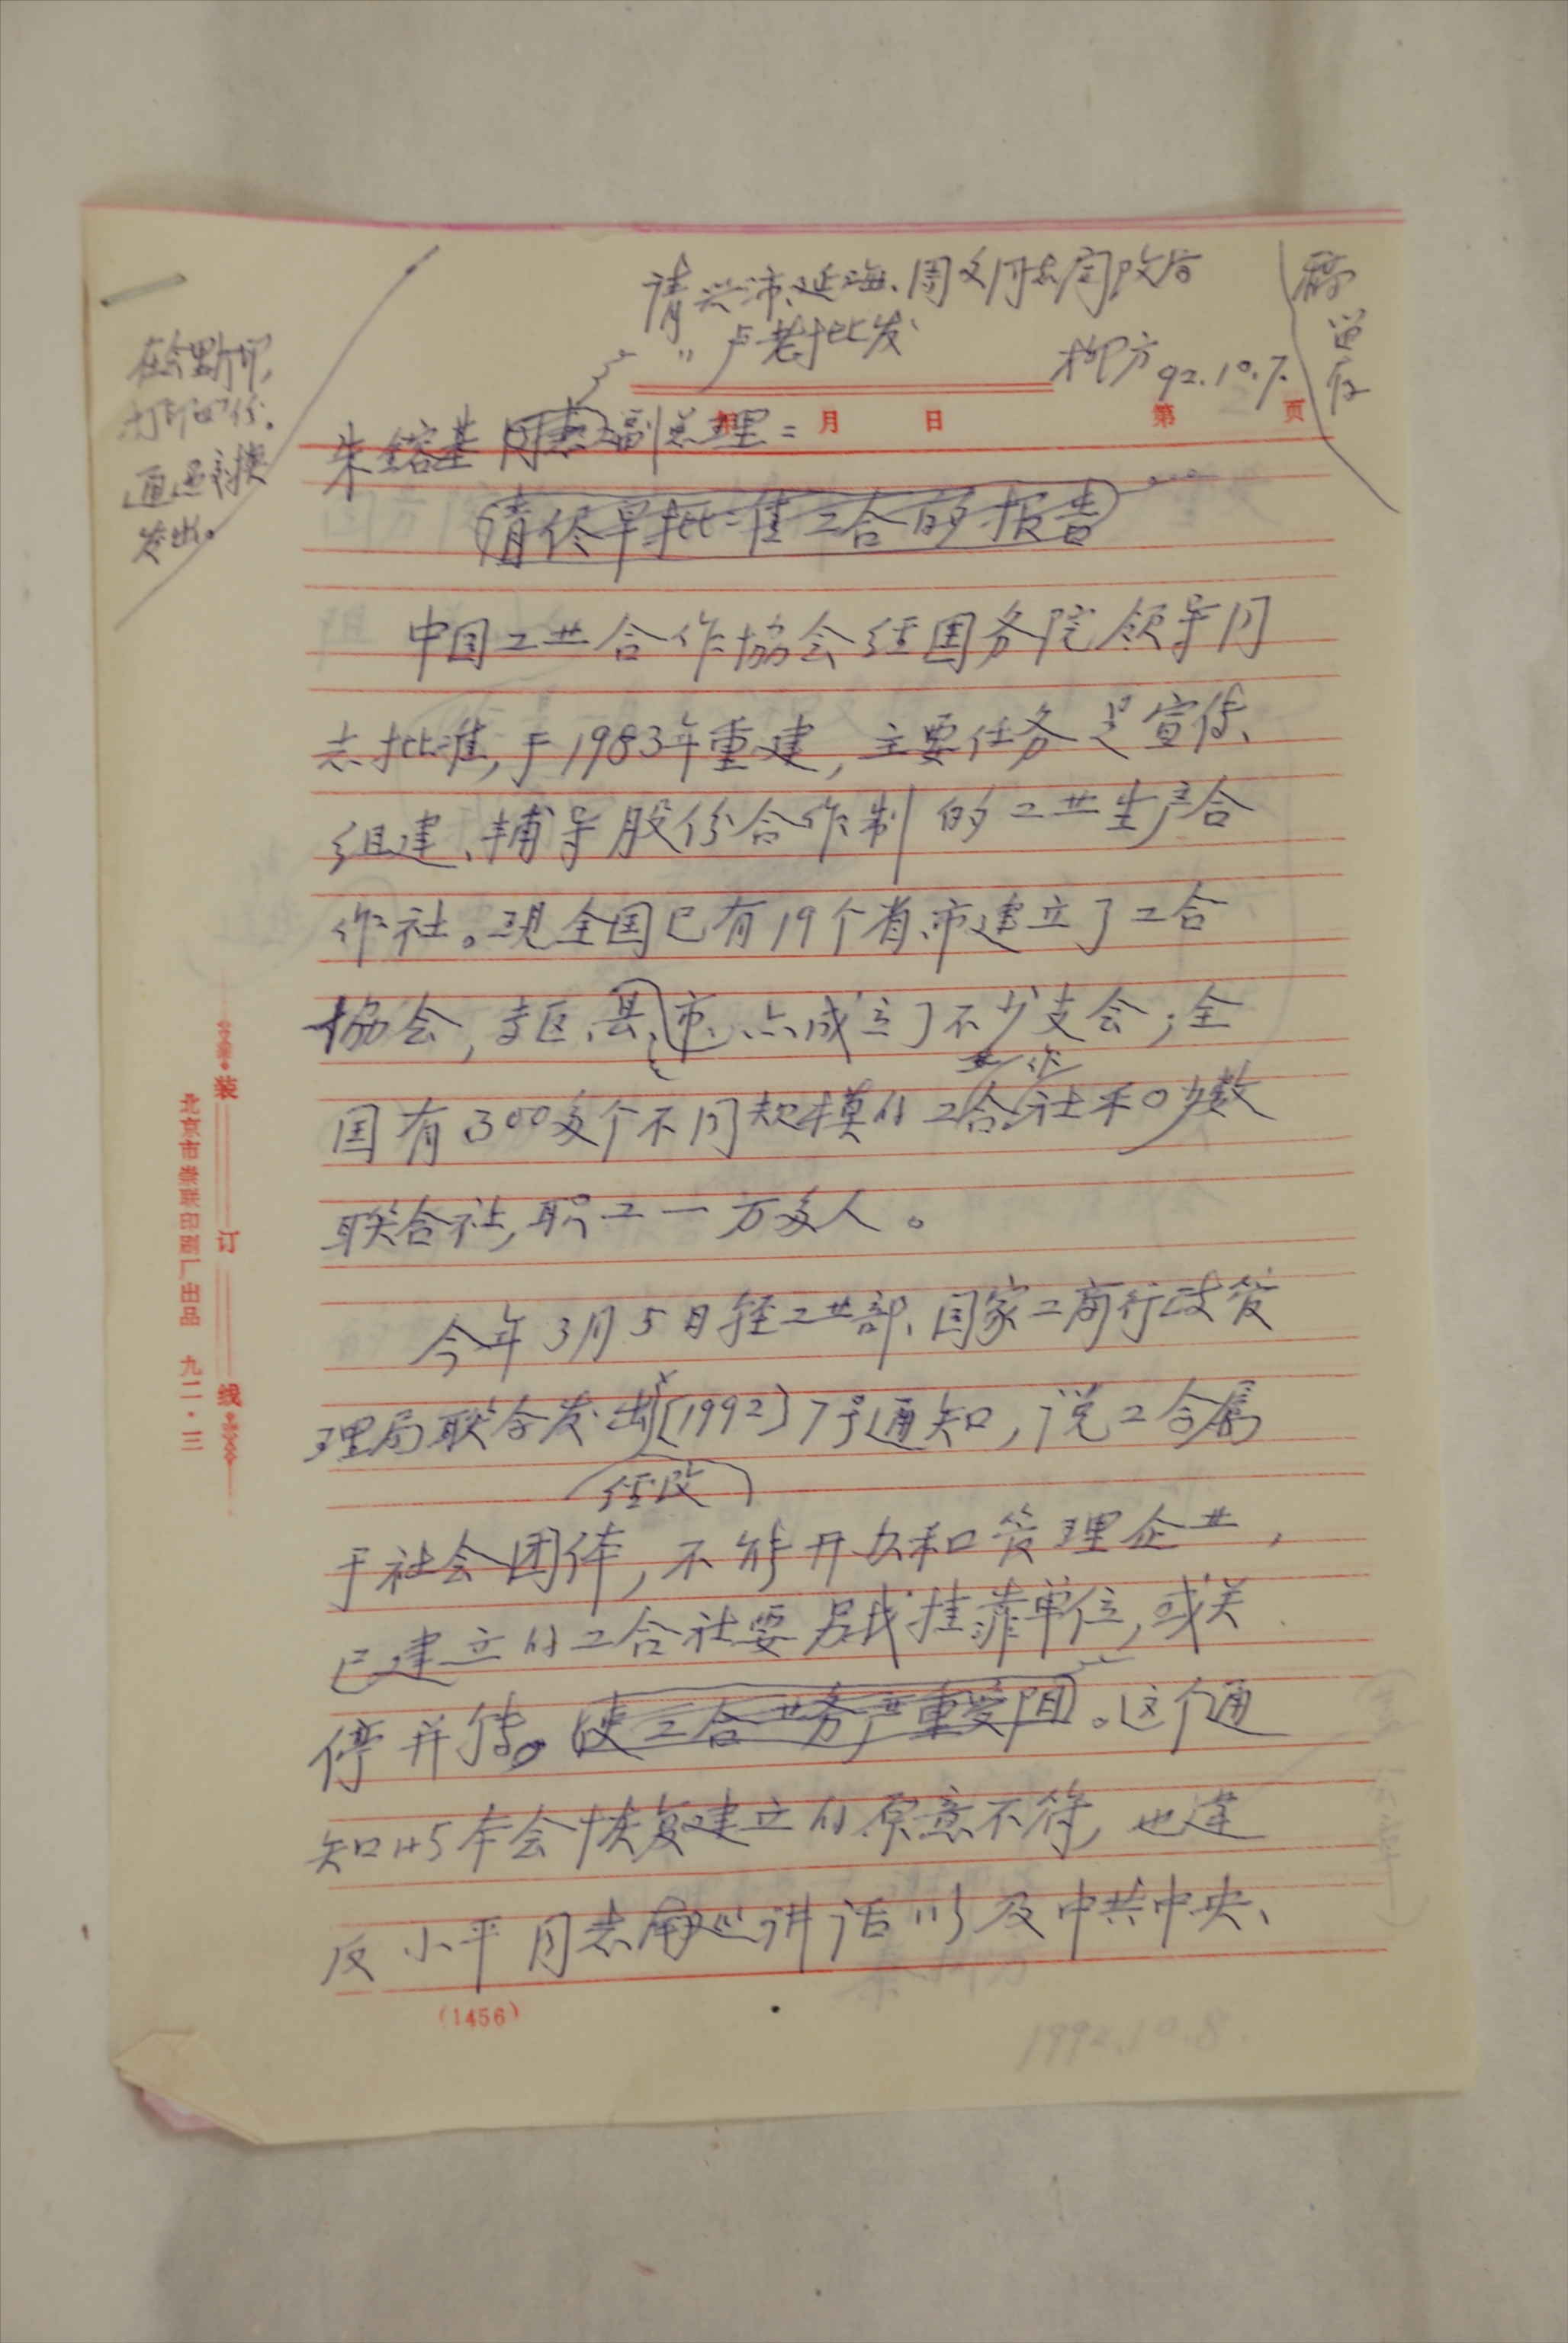 请兴沛、延海、周文同志阅改后
请卢老批发
柳方 92.10.7.
稿
留存
在会里打印,
打印四份。
通过交换
发出。
年 月 日 第 页
朱鎔基同志副总理:
请尽早批准工合的报告
中国工业合作协会经国务院领导同
志批准,于1983年重建,主要任务是宣传、
组建、辅导股份合作制的工业生产合
作社。现全国已有19个省、市建立了工合
协会,专区、县、市、亦成立了不少支会;全
业 作
国有300多个不同规模的工合社和少数
联合社,职工一万多人。
今年3月5日轻工业部、国家工商行政管
理局联合发出[1992]7号通知,说工合属
经改
于社会团体,不能开办和管理企业,
已建立的工合社要另找挂靠单位,或关
停并转。使工合业务严重受阻。这个通
知既与本会恢复建立的原意不符,也违
反小平同志南巡讲话以及中共中央、
装
订
线
北京市崇联印刷厂出品 九二·三
(1456)
1992.10.8.